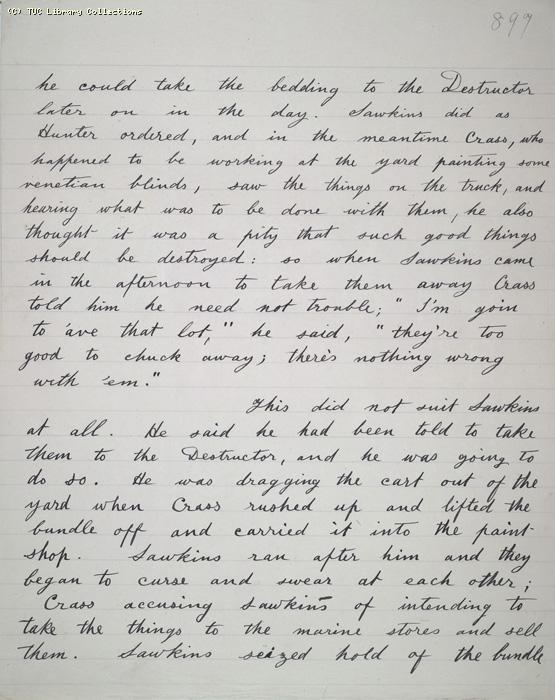 (C) TUC Library Collections
899
he could take the bedding to the Destructor
later on in the day. Sawkins did as
Hunter ordered, and in the meantime Crass, who
happened to be working at the yard painting some
venetian blinds, saw the things on the truck, and
hearing what was to be done with them, he also
thought it was a pity that such good things
should be destroyed: so when Sawkins came
in the afternoon to take them away Crass
told him he need not trouble; "I'm goin
to 'ave that lot," he said, "they're too
good to chuck away; there's nothing wrong
with 'em."
This did not suit Sawkins
at all. He said he had been told to take
them to the Destructor, and he was going to
do so. He was dragging the cart out of the
yard when Crass rushed up and lifted the
bundle off and carried it into the paint-
shop. Sawkins ran after him and they
began to curse and swear at each other;
Crass accusing Sawkins of intending to
take the things to the marine stores and sell
them. Sawkins seized hold of the bundle